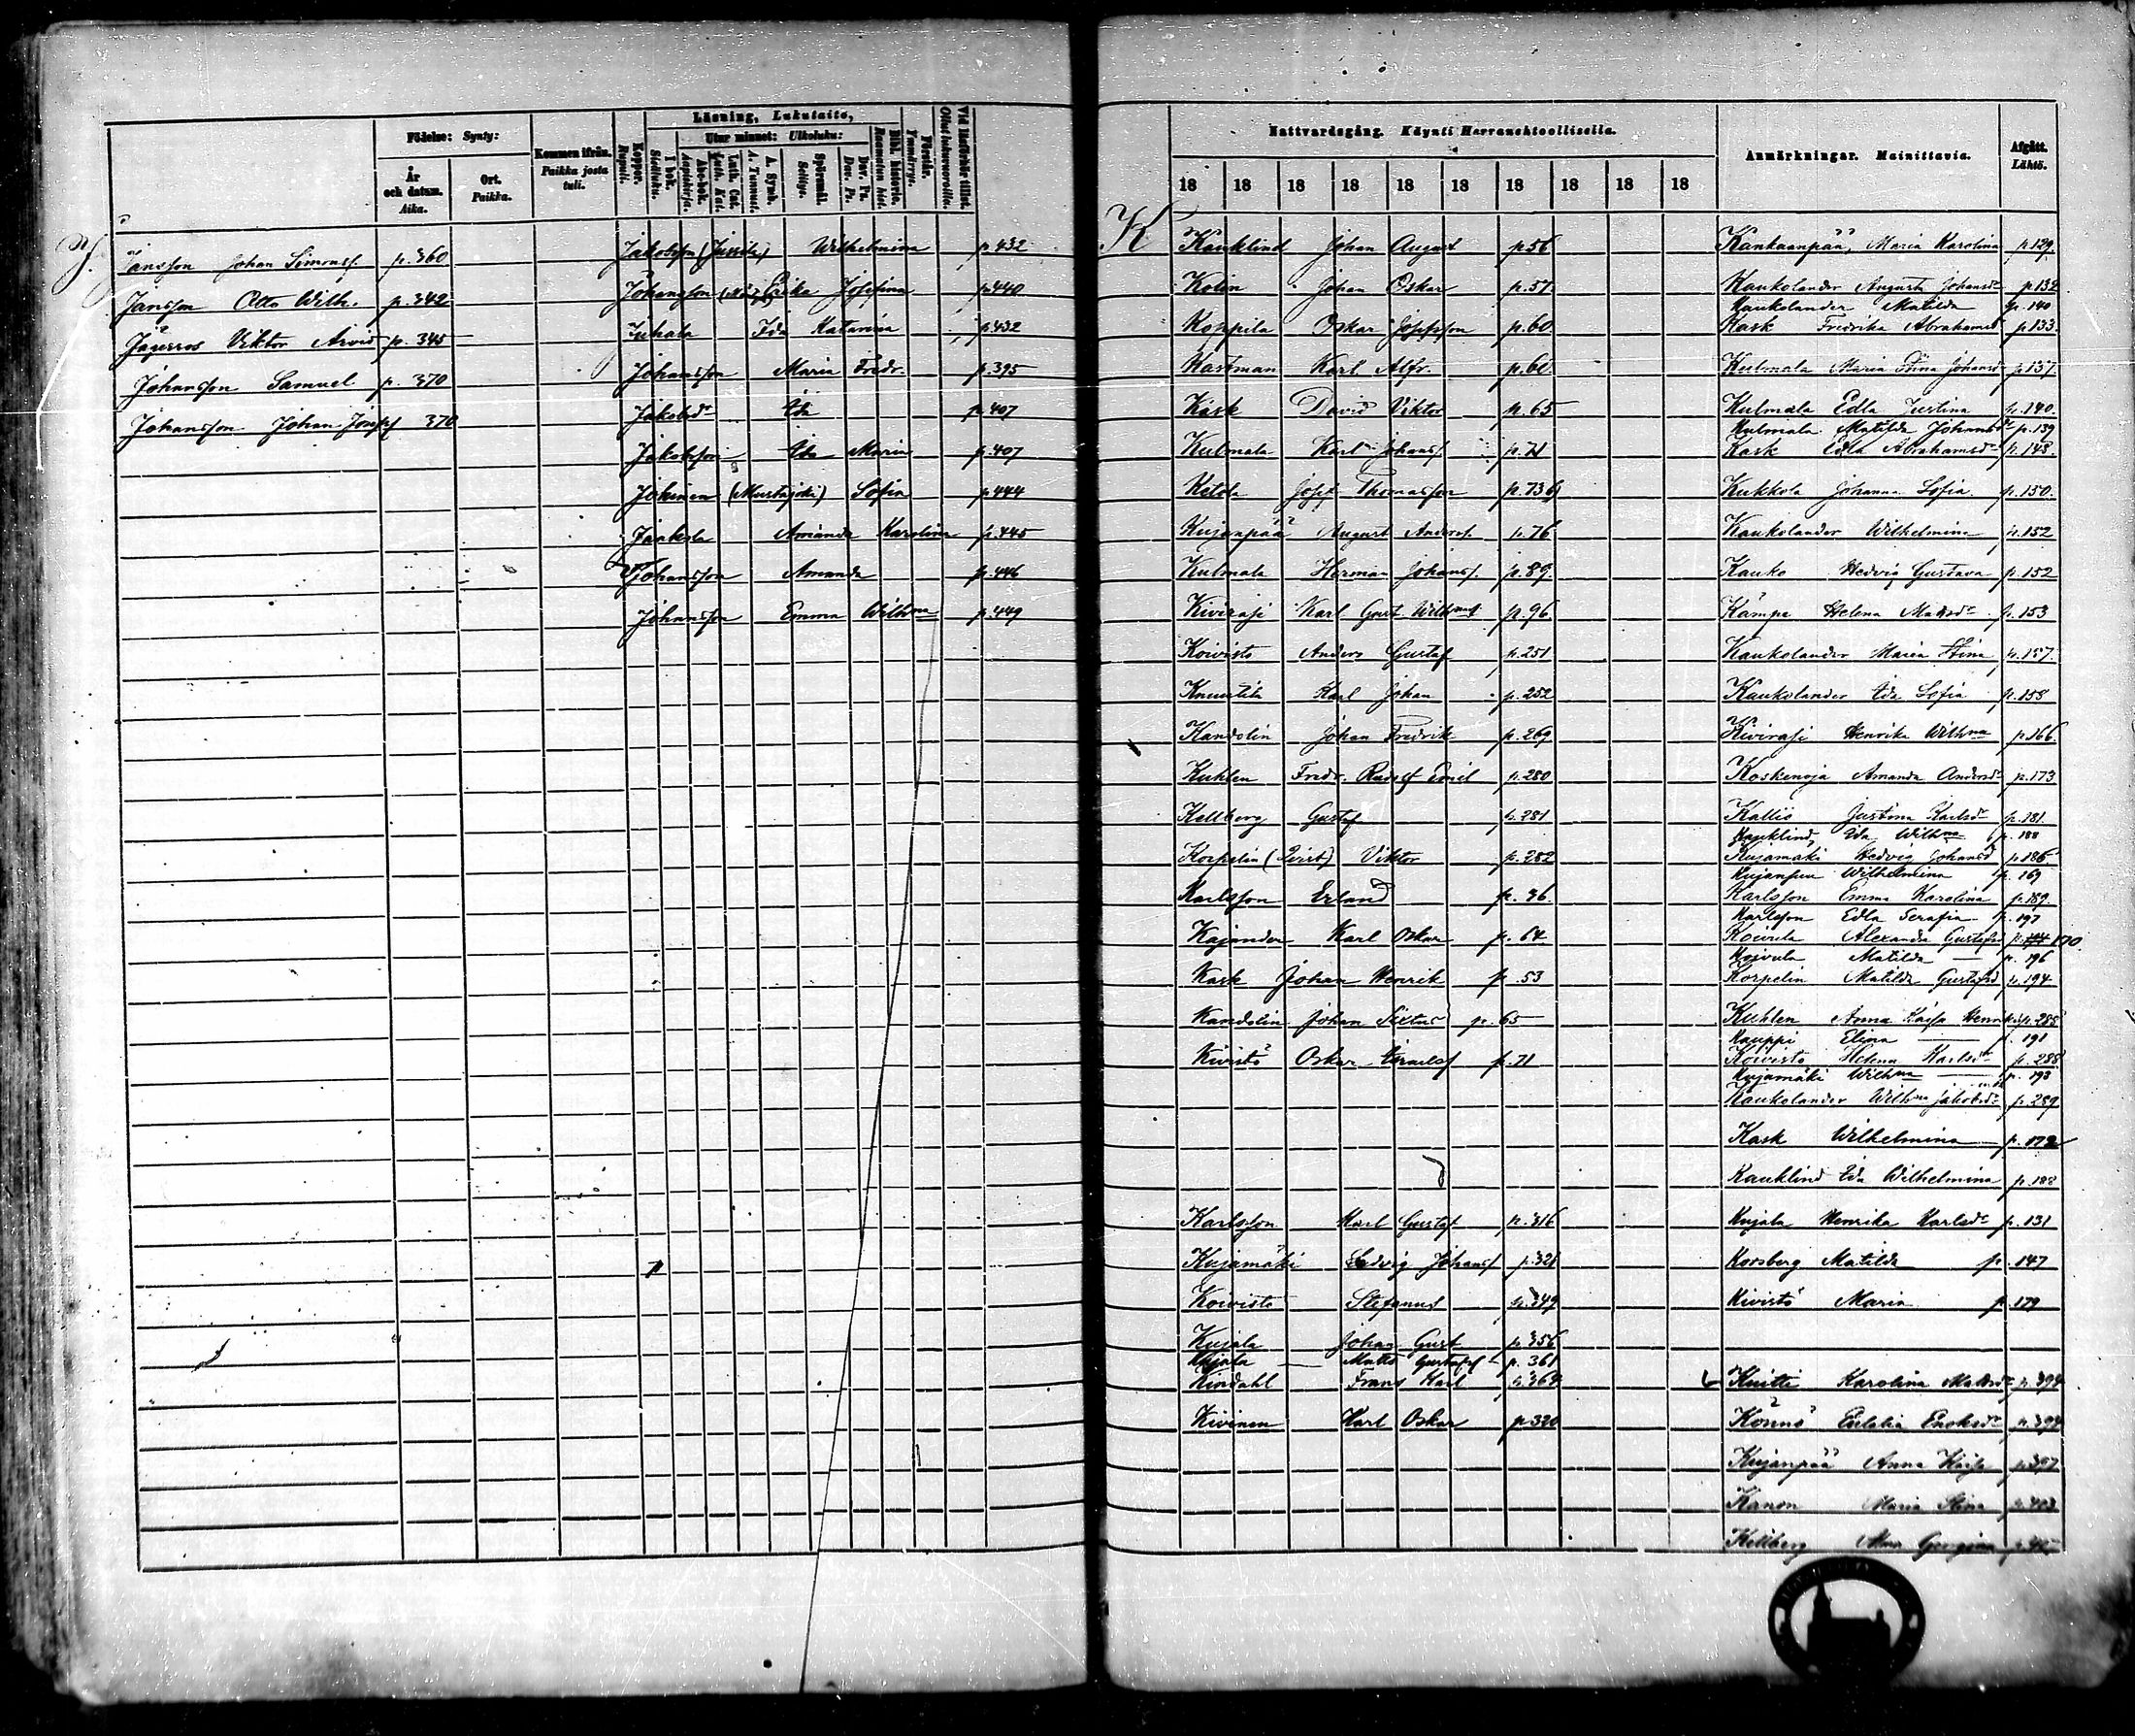 Födelse: Synty:
År och datum. Aika.
Ort. Paikka.
Kommen ifrån. Paikka josta tuli.
Koppor. Rupuli.
Läsning, Lukutaito,
I bok. Sisäluku.
Utur minnet: Ulkoluku:
Abc-bok. Aapiskirja.
Luth. Cat. Luth. Kat.
A. Symb. A. Tunnust.
Spörsmål. Selitys.
Dav. Ps. Dav. Ps.
Bibl. historie. Raamatun hist.
Förstår. Ymmärrys.
Vid läsförhör tillst. Ollut lukuvuoroilla.
J.
Jansson Johan Simonss. p. 360
Jansson Otto Wilh. p. 342
Jägerros Viktor Arvid p. 345
Johansson Samuel p. 370
Johansson Johan Josef 370
Jakobsson (Jussila) Wilhelmina p. 432
Johansson Erika Josefina p. 440
Juhala Ida Katarina p. 432
Johansson Maria Fredr. p. 395
Jakobsdr Ida p. 407
Jakobsson Ida Maria p. 407
Jokinen (Mustajoki) Sofia p. 444
Jaakola Amanda Karolina p. 445
Johansson Amanda p. 446
Johansson Emma Wilhna p. 449
Nattvardsgång. Käynti Herranehtoollisella.
18 18 18 18 18 18 18 18 18 18
Anmärkningar. Mainittavia.
Afgått. Lähtö.
K
Kauklind Johan August p. 56
Kolin Johan Oskar p. 57
Koppila Oskar Josefsson p. 60
Kastman Karl Alfr. p. 60
Kask David Viktor p. 65
Kulmala Karl Johanss. p. 71
Ketola Josef Thomasson p. 736
Kujanpää August Anderss. p. 76
Kulmala Herman Johanss. p. 89
Kiviraji Karl Gust. Wilhms p. 96
Koivisto Anders Gustaf p. 251
Knuutila Karl Johan p. 252
Kandolin Johan Fredrik p. 269
Kuhlen Fredr. Rudolf Emil p. 280
Kellberg Gustaf p. 281
Korpelin (Qvist) Viktor p. 282
Karlsson Erland p. 36
Kajander Karl Oskar p. 64
Kask Johan Henrik p. 53
Kandolin Johan Sixtus p. 65
Kivistö Oskar Israelss p. 71
Karlsson Karl Gustaf p. 316
Kujamäki Ludvig Johanss p. 321
Koivisto Stefanus p. 349
Kujala Johan Gust. p. 356
Kujala Matts Gustafss p. 361
Kindahl Frans Karl p. 363
Kivinen Karl Oskar p. 320
Kankaanpää, Maria Karolina p. 129
Kaukolander Augusta Johansdr p. 132
Kaukolander Matilda p. 140
Kask Fredrika Abrahamsd p. 133
Kulmala Maria Stina Johansd p. 137
Kulmala Edla Justina p. 140
Kulmala Matilda Johansdr p. 139
Kask Edla Abrahamsdr p. 148
Kukkola Johanna Sofia p. 150
Kaukolander Wilhelmina p. 152
Kauko Hedvig Gustava p. 152
Kämpe Helena Mattsdr p. 153
Kaukolander Maria Stina p. 157
Kaukolander Ida Sofia p. 158
Kiviraji Henrika Wilhna p. 166
Koskenoja Amanda Andersdr p. 173
Kallio Justina Karlsdr p. 181
Kauklind, Ida Wilhna p. 188
Kujamäki Hedvig Johansd p. 186
Kujanpää Wilhelmina p. 169
Karlsson Emma Karolina p. 189
Karlsson Edla Serafia p. 197
Koivula Alexandra Gustafsd p. 170
Koivula Matilda p. 196
Korpelin Matilda Gustafsd p. 194
Kuhlen Anna Kajsa p. 285
Kauppi Elina p. 191
Koivisto Helena Karlsdr p. 288
Kujamäki Wilhna p. 193
Kaukolander Wilhna Jakobsdr p. 289
Kask Wilhelmina p. 172
Kauklind Ida Wilhelmina p. 188
Kujala Henrika Karlsdr p. 131
Korsberg Matilda p. 147
Kivistö Maria p. 179
Knitti Karolina Mattsdr p. 394
Könnö Eulalia Enoksdr p. 394
Kujanpää Anna Kajsa p. 397
Kanon Maria Stina p. 403
Kellberg Alma Georgina